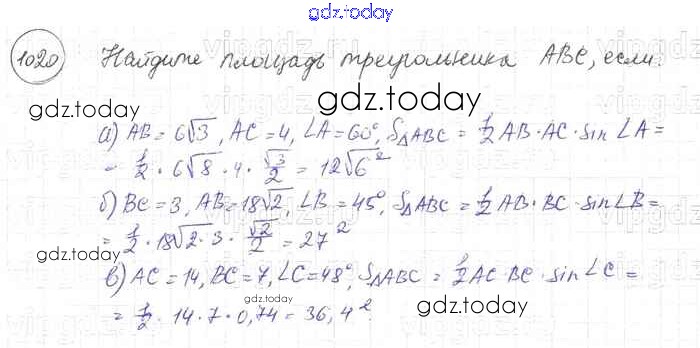 gdz.today
1020 Найдите площадь треугольника ABC, если:
gdz.today
а) AB = 6√3, AC = 4, ∠A = 60°, S△ABC = 1/2 AB · AC · sin ∠A =
= 1/2 · 6√8 · 4 · √3/2 = 12√6 ²
б) BC = 3, AB = 18√2, ∠B = 45°, S△ABC = 1/2 AB · BC · sin ∠B =
= 1/2 · 18√2 · 3 · √2/2 = 27 ²
gdz.today
в) AC = 14, BC = 7, ∠C = 48°, S△ABC = 1/2 AC · BC · sin ∠C =
gdz.today
gdz.today
= 1/2 · 14 · 7 · 0,74 = 36,4 ².